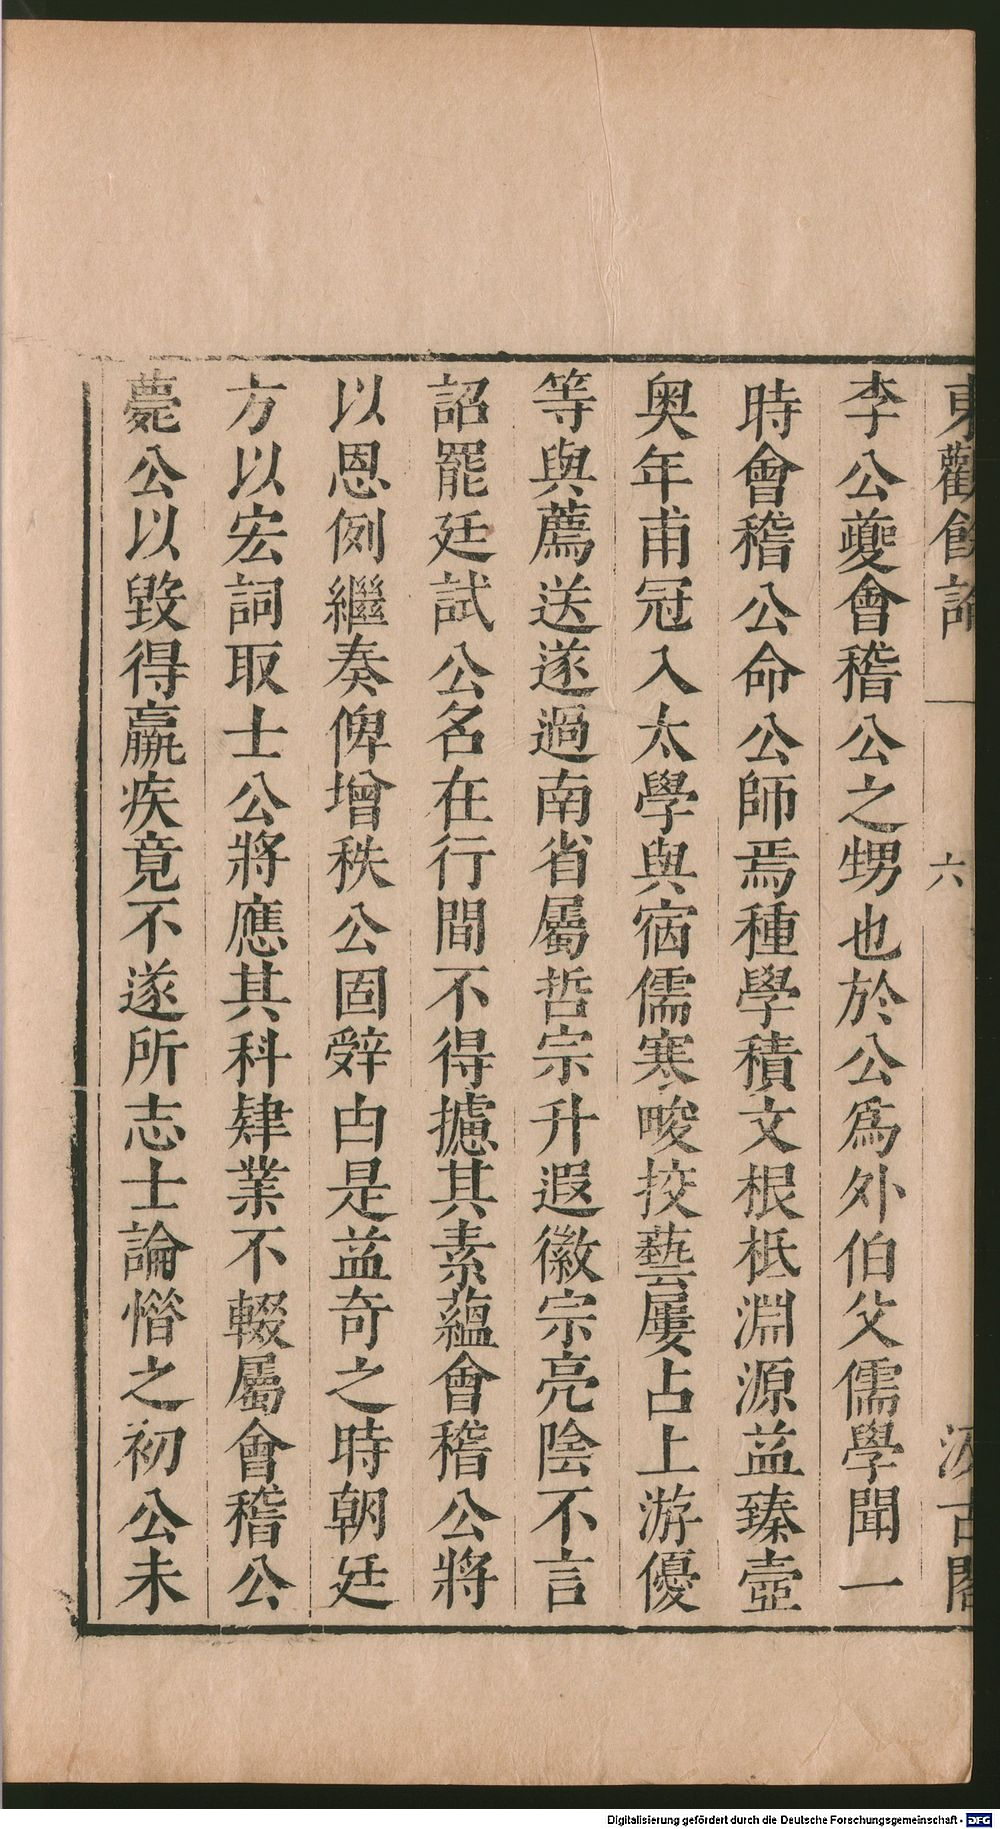 東觀餘論
六
汲古閣
李公夔會稽公之甥也於公爲外伯父儒學聞一
時會稽公命公師焉種學積文根柢淵源益臻壼
奥年甫冠入太學與宿儒寒畯挍藝屢占上游優
等與薦送遂過南省屬哲宗升遐徽宗亮陰不言
詔罷廷試公名在行間不得攄其素蘊會稽公將
以恩例繼奏俾增秩公固辤由是益奇之時朝廷
方以宏詞取士公將應其科肄業不輟屬會稽公
薨公以毀得羸疾竟不遂所志士論惜之初公未
Digitalisierung gefördert durch die Deutsche Forschungsgemeinschaft - DFG